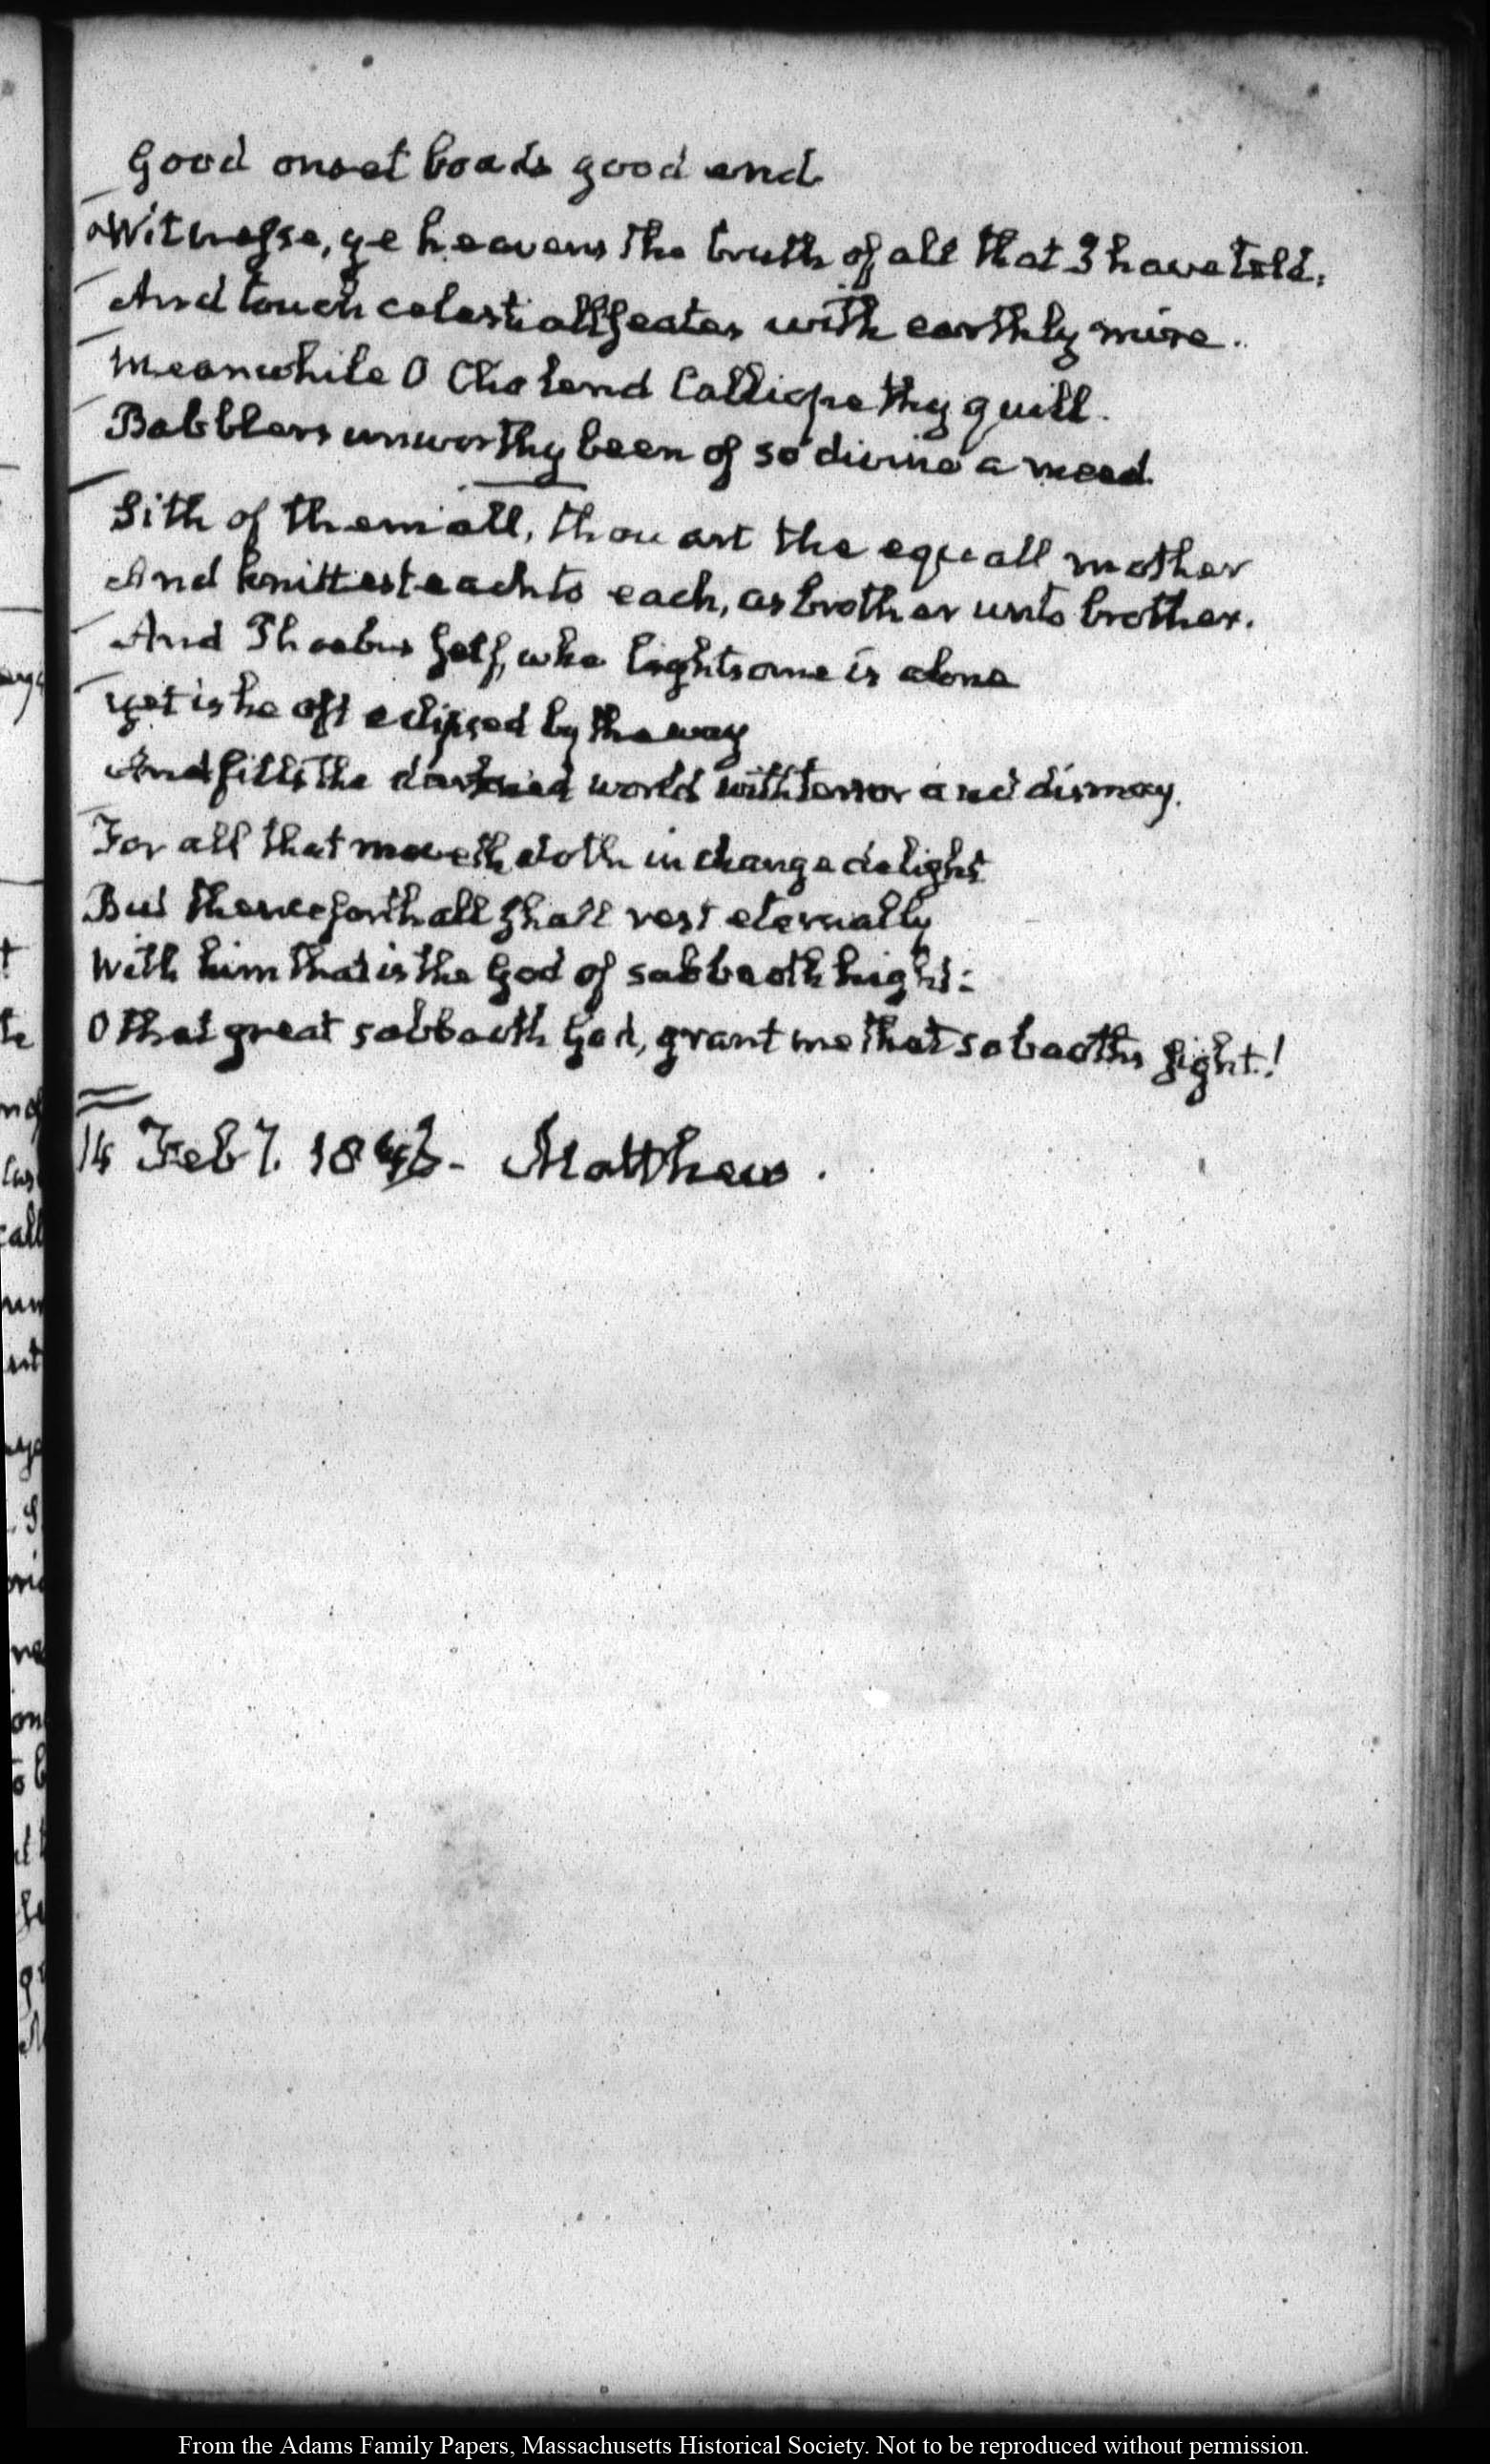 Good onset boads good end
Witnesse, ye heavens the truth of all that I have told,
And touch celestiall seates with earthly mire.
Meanwhile O Clio lend Calliope thy quill.
Babblers unworthy been of so divine a meed.
Sith of them all, thou art the equall mother
And knittest each to each, as brother unto brother.
And Phoebus self, who lightsome is alone
yet is he oft eclipsed by the way
And fills the darkned world with terror and dismay.
For all that moveth doth in change delight
But thenceforth all shall rest eternally
With him that is the God of sabbaoth hight:
O that great sabbaoth God, grant me that sabaoths sight!
14 Feby. 1846 - Matthew.
From the Adams Family Papers, Massachusetts Historical Society. Not to be reproduced without permission.